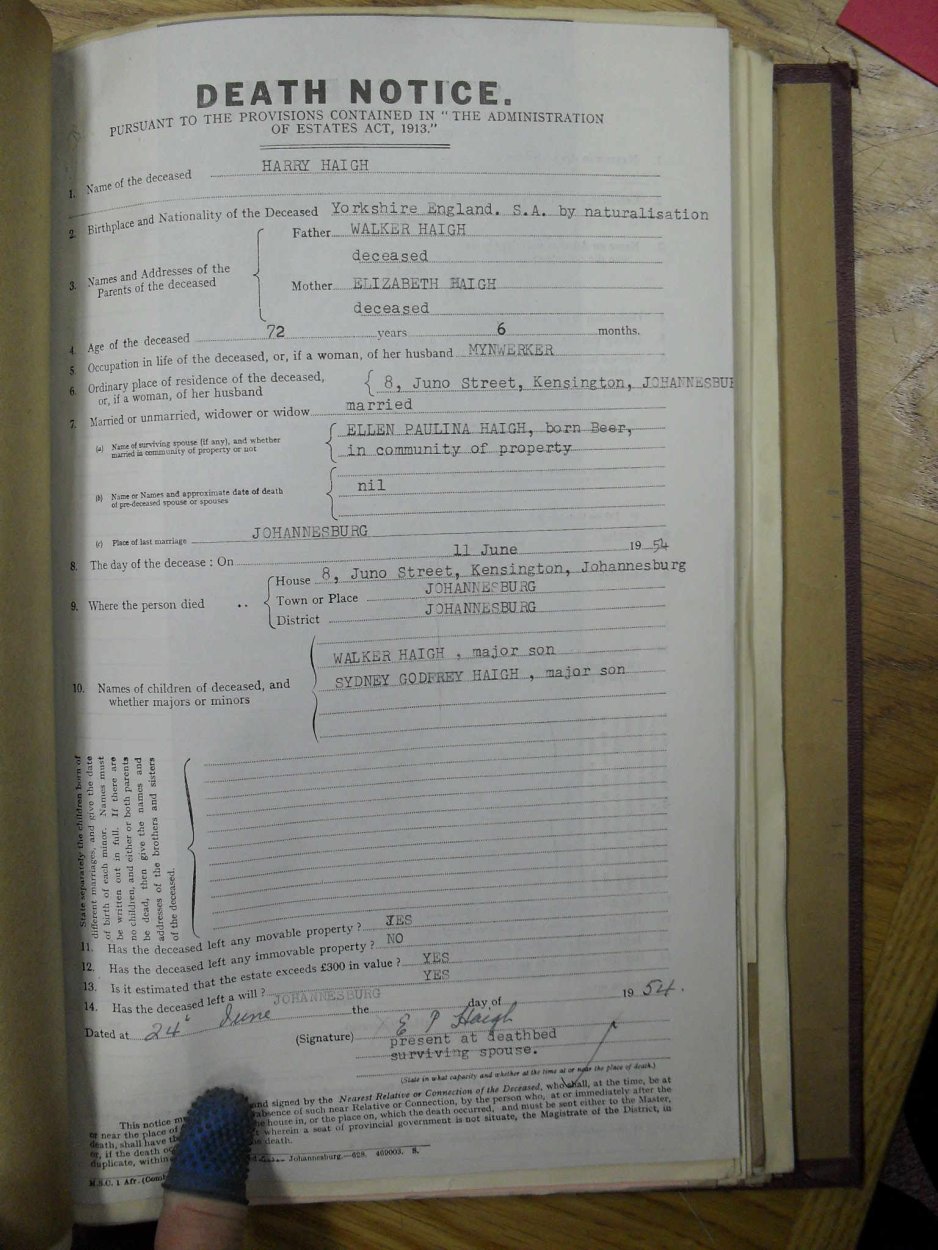 DEATH NOTICE.
PURSUANT TO THE PROVISIONS CONTAINED IN "THE ADMINISTRATION
OF ESTATES ACT, 1913."
1. Name of the deceased HARRY HAIGH
2. Birthplace and Nationality of the Deceased Yorkshire England. S.A. by naturalisation
3. Names and Addresses of the Parents of the deceased
Father WALKER HAIGH
deceased
Mother ELIZABETH HAIGH
deceased
4. Age of the deceased 72 years 6 months.
5. Occupation in life of the deceased, or, if a woman, of her husband MYNWERKER
6. Ordinary place of residence of the deceased,
or, if a woman, of her husband
8, Juno Street, Kensington, JOHANNESBU
7. Married or unmarried, widower or widow married
(a) Name of surviving spouse (if any), and whether
married in community of property or not
ELLEN PAULINA HAIGH, born Beer,
in community of property
(b) Name or Names and approximate date of death
of pre-deceased spouse or spouses
nil
(c) Place of last marriage JOHANNESBURG
8. The day of the decease : On 11 June 19 54
9. Where the person died ..
House 8, Juno Street, Kensington, Johannesburg
Town or Place JOHANNESBURG
District JOHANNESBURG
10. Names of children of deceased, and
whether majors or minors
WALKER HAIGH , major son
SYDNEY GODFREY HAIGH , major son
State separately the children born of
different marriages, and give the date
of birth of each minor. Names must
be written out in full. If there are
no children, and either or both parents
be dead, then give the names and
addresses of the brothers and sisters
of the deceased.
11. Has the deceased left any movable property ? YES
12. Has the deceased left any immovable property ? NO
13. Is it estimated that the estate exceeds £300 in value ? YES
14. Has the deceased left a will ? YES
JOHANNESBURG
Dated at 24 June the day of 19 54.
(Signature) E P Haigh
present at deathbed
surviving spouse.
(State in what capacity and whether at the time at or near the place of death.)
This notice and signed by the Nearest Relative or Connection of the Deceased, who shall, at the time, be at
or near the place of absence of such near Relative or Connection, by the person who, at or immediately after the
death, shall have house in, or the place on, which the death occurred, and must be sent either to the Master,
or, if the death wherein a seat of provincial government is not situate, the Magistrate of the District, in
duplicate, within death.
Johannesburg.—628. 469003. S.
M.S.C. 1 Afr.